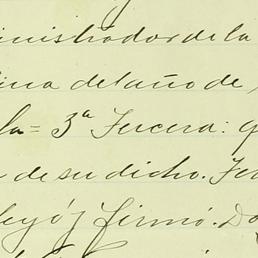 inistrador de la
ina del año de
la = 3ª Tercera: q
de su dicho. Ter
leyó y firmó. Do